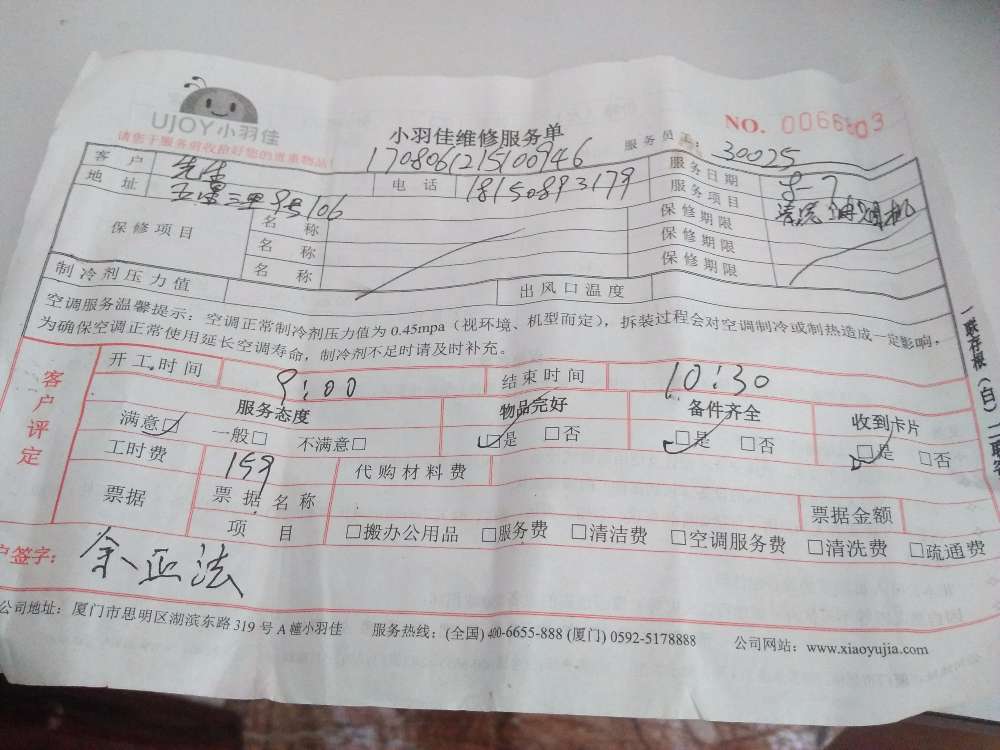 UJOY小羽佳
请您于服务前收拾好您的贵重物品!
小羽佳维修服务单
NO. 0066803
1708061215100946
服务员工: 30025
客户 先生 电话 18150893179 服务日期 8-7
地址 三里9号106 服务项目 清洗油烟机
保修项目 名称 保修期限
名称 保修期限
名称 保修期限
制冷剂压力值 出风口温度
空调服务温馨提示:空调正常制冷剂压力值为 0.45mpa(视环境、机型而定),拆装过程会对空调制冷或制热造成一定影响,
为确保空调正常使用延长空调寿命,制冷剂不足时请及时补充。
客户评定
开工时间 9:00 结束时间 10:30
服务态度 物品完好 备件齐全 收到卡片
满意☑ 一般□ 不满意□ ☑是 □否 ☑是 □否 ☑是 □否
工时费 159 代购材料费
票据 票据名称 票据金额
项目 □搬办公用品 □服务费 □清洁费 □空调服务费 □清洗费 □疏通费
户签字: 余亚法
公司地址:厦门市思明区湖滨东路 319 号 A 幢小羽佳 服务热线:(全国) 400-6655-888 (厦门) 0592-5178888 公司网站:www.xiaoyujia.com
一联存根(白)二联客